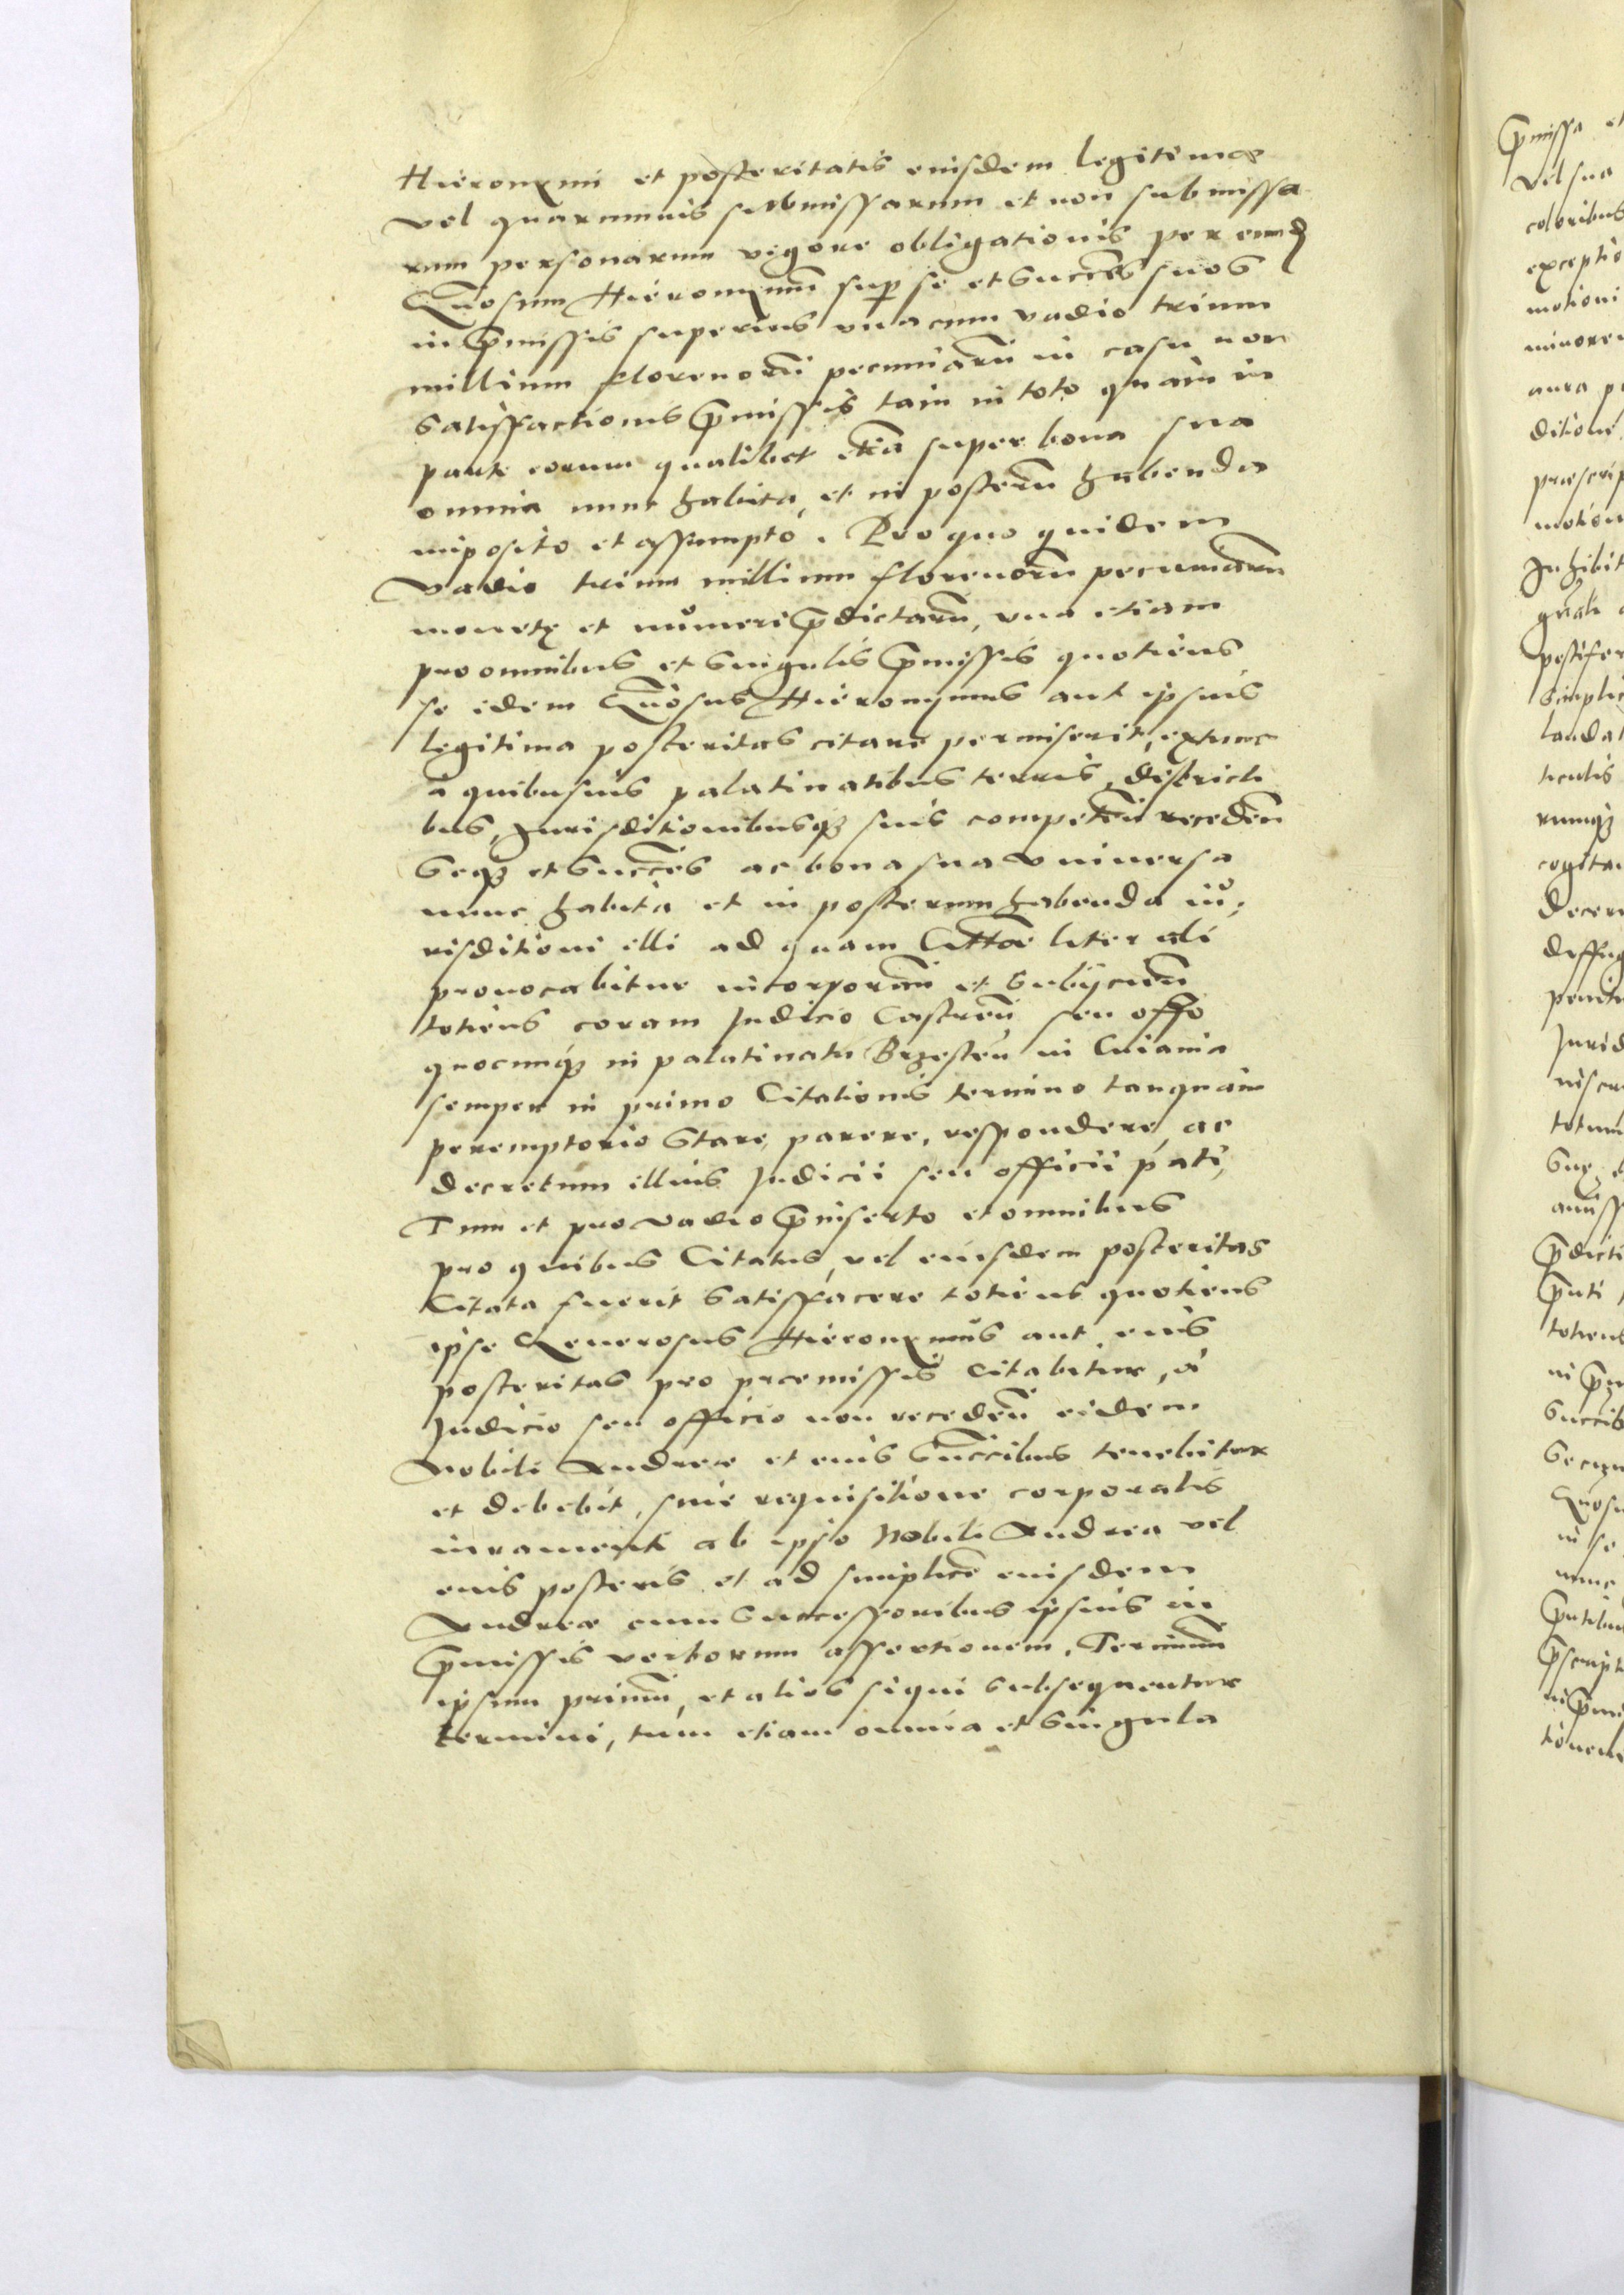 Hieronymi et posteritatis eiusdem legitimae
vel quarumuis submissarum et non submissa
rum personarum vigore obligationis per eund
Gnosum Hieronymum sup se et Succes suos
in pmissis superius vna cum vadio trium
millium florenorū pecuniarū in casu non
satisfactionis pmissis tam in toto quàm in
parte eorum qualibet etiā super bona sua
omnia nunc habita, et in posterū habenda
imposito et assumpto. Pro quo quidem
vadio trium millium florenorū pecuniarū
monetę et numeri pdictarū, vna etiam
pro omnibus et Singulis pmissis quotiens
se idem Gnosus Hieronymus aut ipsius
legitima posteritas citare permiserit, extunc
à quibusuis palatinatibus terris, districti
bus, Jurisditionibusq suis competeñ recedeñ
Seq et Succes ac bona sua vniuersa
nunc habita et in posterum habenda iu,
risditioni illi ad quam Citatōe literali
prouocabitur incorporañ et Subijcieñ
totiens coram Judicio Castreñ seu offo
quocunq in palatinatu Brzesteñ in Cuiauia
semper in primo Citationis termino tanquam
peremptorio Stare, parere, respondere, ac
decretum illius Judicii seu officii pati,
Tum et pro vadio pinserto et omnibus
pro quibus Citatus, vel eiusdem posteritas
Citata fuerit Satisfacere totiens quotiens
ipse Generosus Hieronymus aut eius
posteritas pro praemissis Citabitur, à
Judicio seu officio non recedeñ eidem
Nobili Andreae et eius Succibus tenebitur
et debebit, sine requisitione corporalis
iuramenti ab ipso Nobili Andrea vel
eius posteris et ad simplicē eiusdem
Andreae cum Successoribus ipsius in
pmissis verborum assertionem. Terminū
ipsum primū, et alios siqui subsequentur
termini, tum etiam omnia et Singula